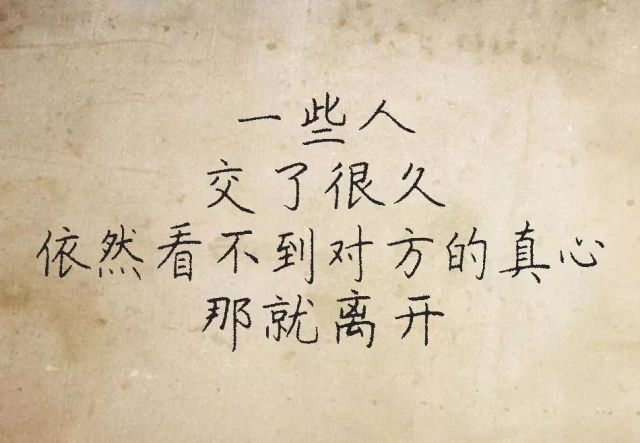 一些人
交了很久
依然看不到对方的真心
那就离开